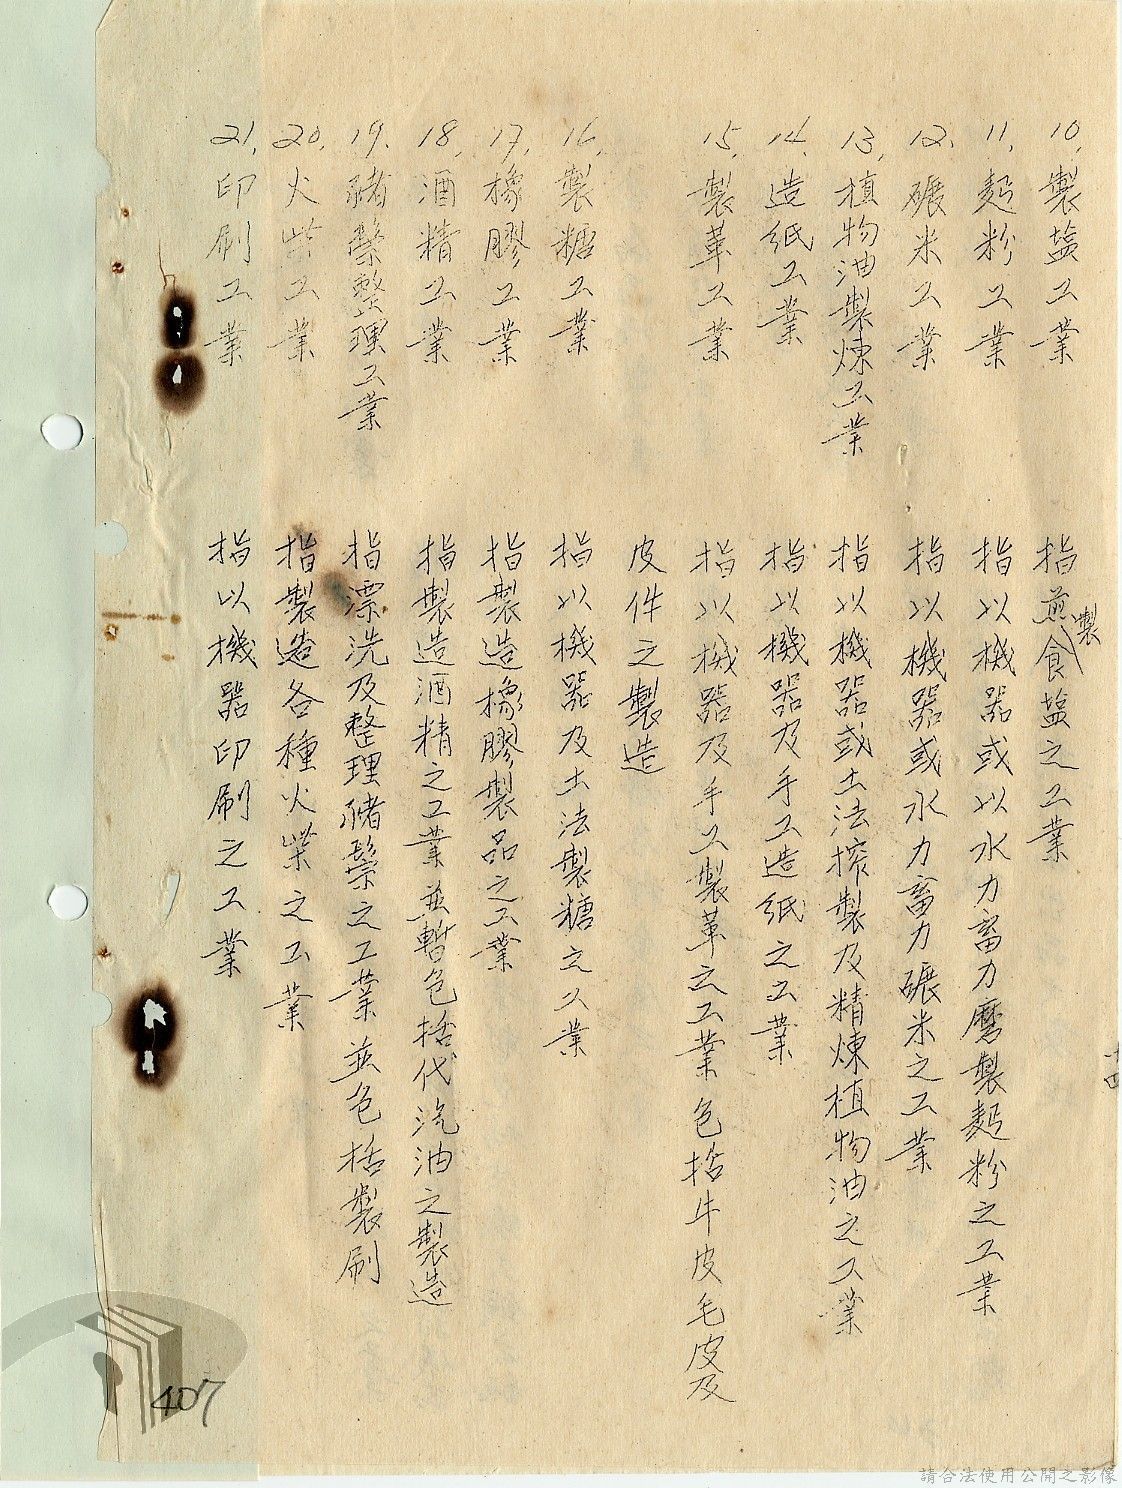 10. 製塩工業　指煎製食塩之工業
11. 麪粉工業　指以機器或以水力畜力磨製麪粉之工業
12. 碾米工業　指以機器或水力畜力碾米之工業
13. 植物油製煉工業　指以機器或土法搾製及精煉植物油之工業
14. 造紙工業　指以機器及手工造紙之工業
15. 製革工業　指以機器及手工製革之工業包括牛皮毛皮及
皮件之製造
16. 製糖工業　指以機器及土法製糖之工業
17. 橡膠工業　指製造橡膠製品之工業
18. 酒精工業　指製造酒精之工業並暫包括代汽油之製造
19. 豬鬃整理工業　指漂洗及整理豬鬃之工業並包括製刷
20. 火柴工業　指製造各種火柴之工業
21. 印刷工業　指以機器印刷之工業
十四
407
請合法使用公開之影像